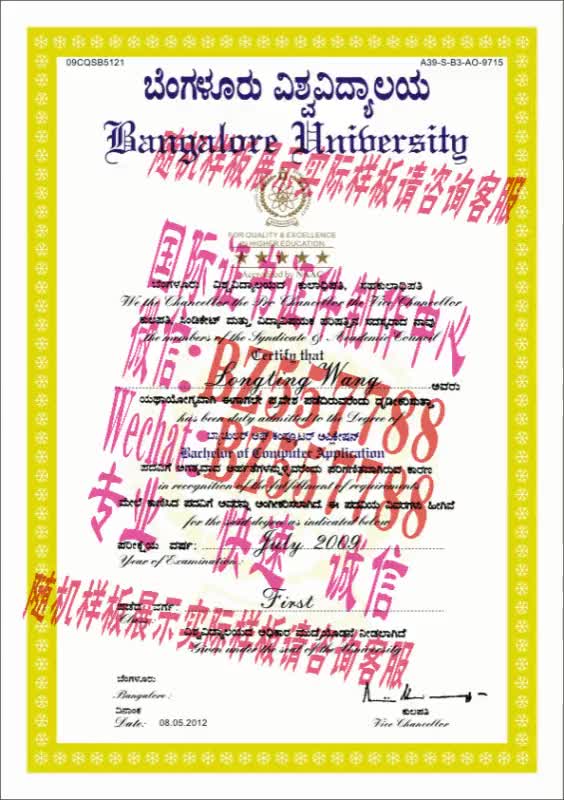 09CQSB5121 A39-S-B3-AO-9715
ಬೆಂಗಳೂರು ವಿಶ್ವವಿದ್ಯಾಲಯ
Bangalore University
随机样板展示实际样板请咨询客服
FOR QUALITY & EXCELLENCE
IN HIGHER EDUCATION
Accredited by NAAC
国际证书证件制作中心
ಬೆಂಗಳೂರು ವಿಶ್ವವಿದ್ಯಾಲಯದ ಕುಲಾಧಿಪತಿ, ಸಹಕುಲಾಧಿಪತಿ
We the Chancellor the Pro Chancellor the Vice Chancellor
ಕುಲಪತಿ, ಸಿಂಡಿಕೇಟ್ ಮತ್ತು ವಿದ್ಯಾವಿಷಯಕ ಪರಿಷತ್ತಿನ ಸದಸ್ಯರಾದ ನಾವು
the members of the Syndicate & Academic Council
Certify that
微信: BZ557788
Longting Wang ಅವರು
has been duly admitted to the Degree of
Wechat: BZ557788
Bachelor of Computer Application
in recognition of the fulfillment of requirements
for the said degree as indicated below
专业 快速 诚信
ಪರೀಕ್ಷೆಯ ವರ್ಷ: July 2009
Year of Examination:
ವರ್ಗ: First
Class:
随机样板展示实际样板请咨询客服
Given under the seal of the University
ಬೆಂಗಳೂರು:
Bangalore:
ದಿನಾಂಕ ಕುಲಪತಿ
Date: 08.05.2012 Vice Chancellor